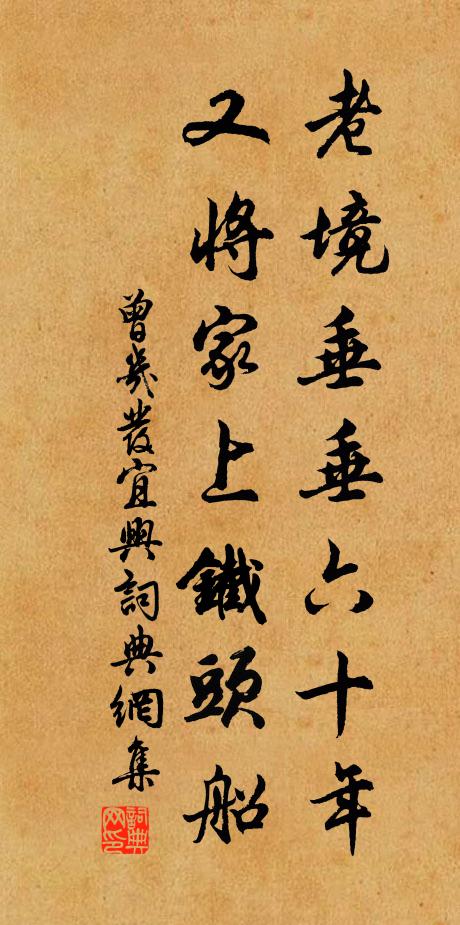 老境垂垂六十年
又將家上鐵頭船
曾幾發宜興詞典網集
詞典網印